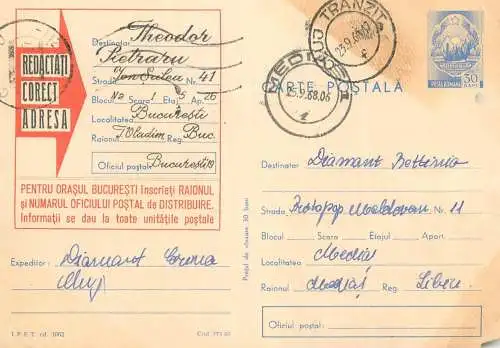 REDACTAȚI
CORECT
ADRESA
Destinatar Theodor
Pietraru
Strada Ion Șulea Nr. 41
Blocul No Scara 1 Etaj 5 Ap. 26
Localitatea București
Raionul T. Vladim. Reg. Buc.
Oficiul poștal București 19
PENTRU ORAȘUL BUCUREȘTI înscrieți RAIONUL
și NUMĂRUL OFICIULUI POȘTAL de DISTRIBUIRE.
Informații se dau la toate unitățile poștale
Expeditor: Diamant Corina
Cluj
I. P. F. T. cd. 1002
Prețul de vînzare 30 bani
CLUJ TRANZIT
23.9.68
MEDIAȘ
25.9.68.06
POSTA ROMANA 30 BANI
CARTE POSTALA
Destinatar Diamant Betterina
Strada Protopop Moldovan Nr. 11
Blocul Scara Etajul Apart.
Localitatea Mediaș
Raionul Mediaș Reg. Sibiu
Oficiul poștal: